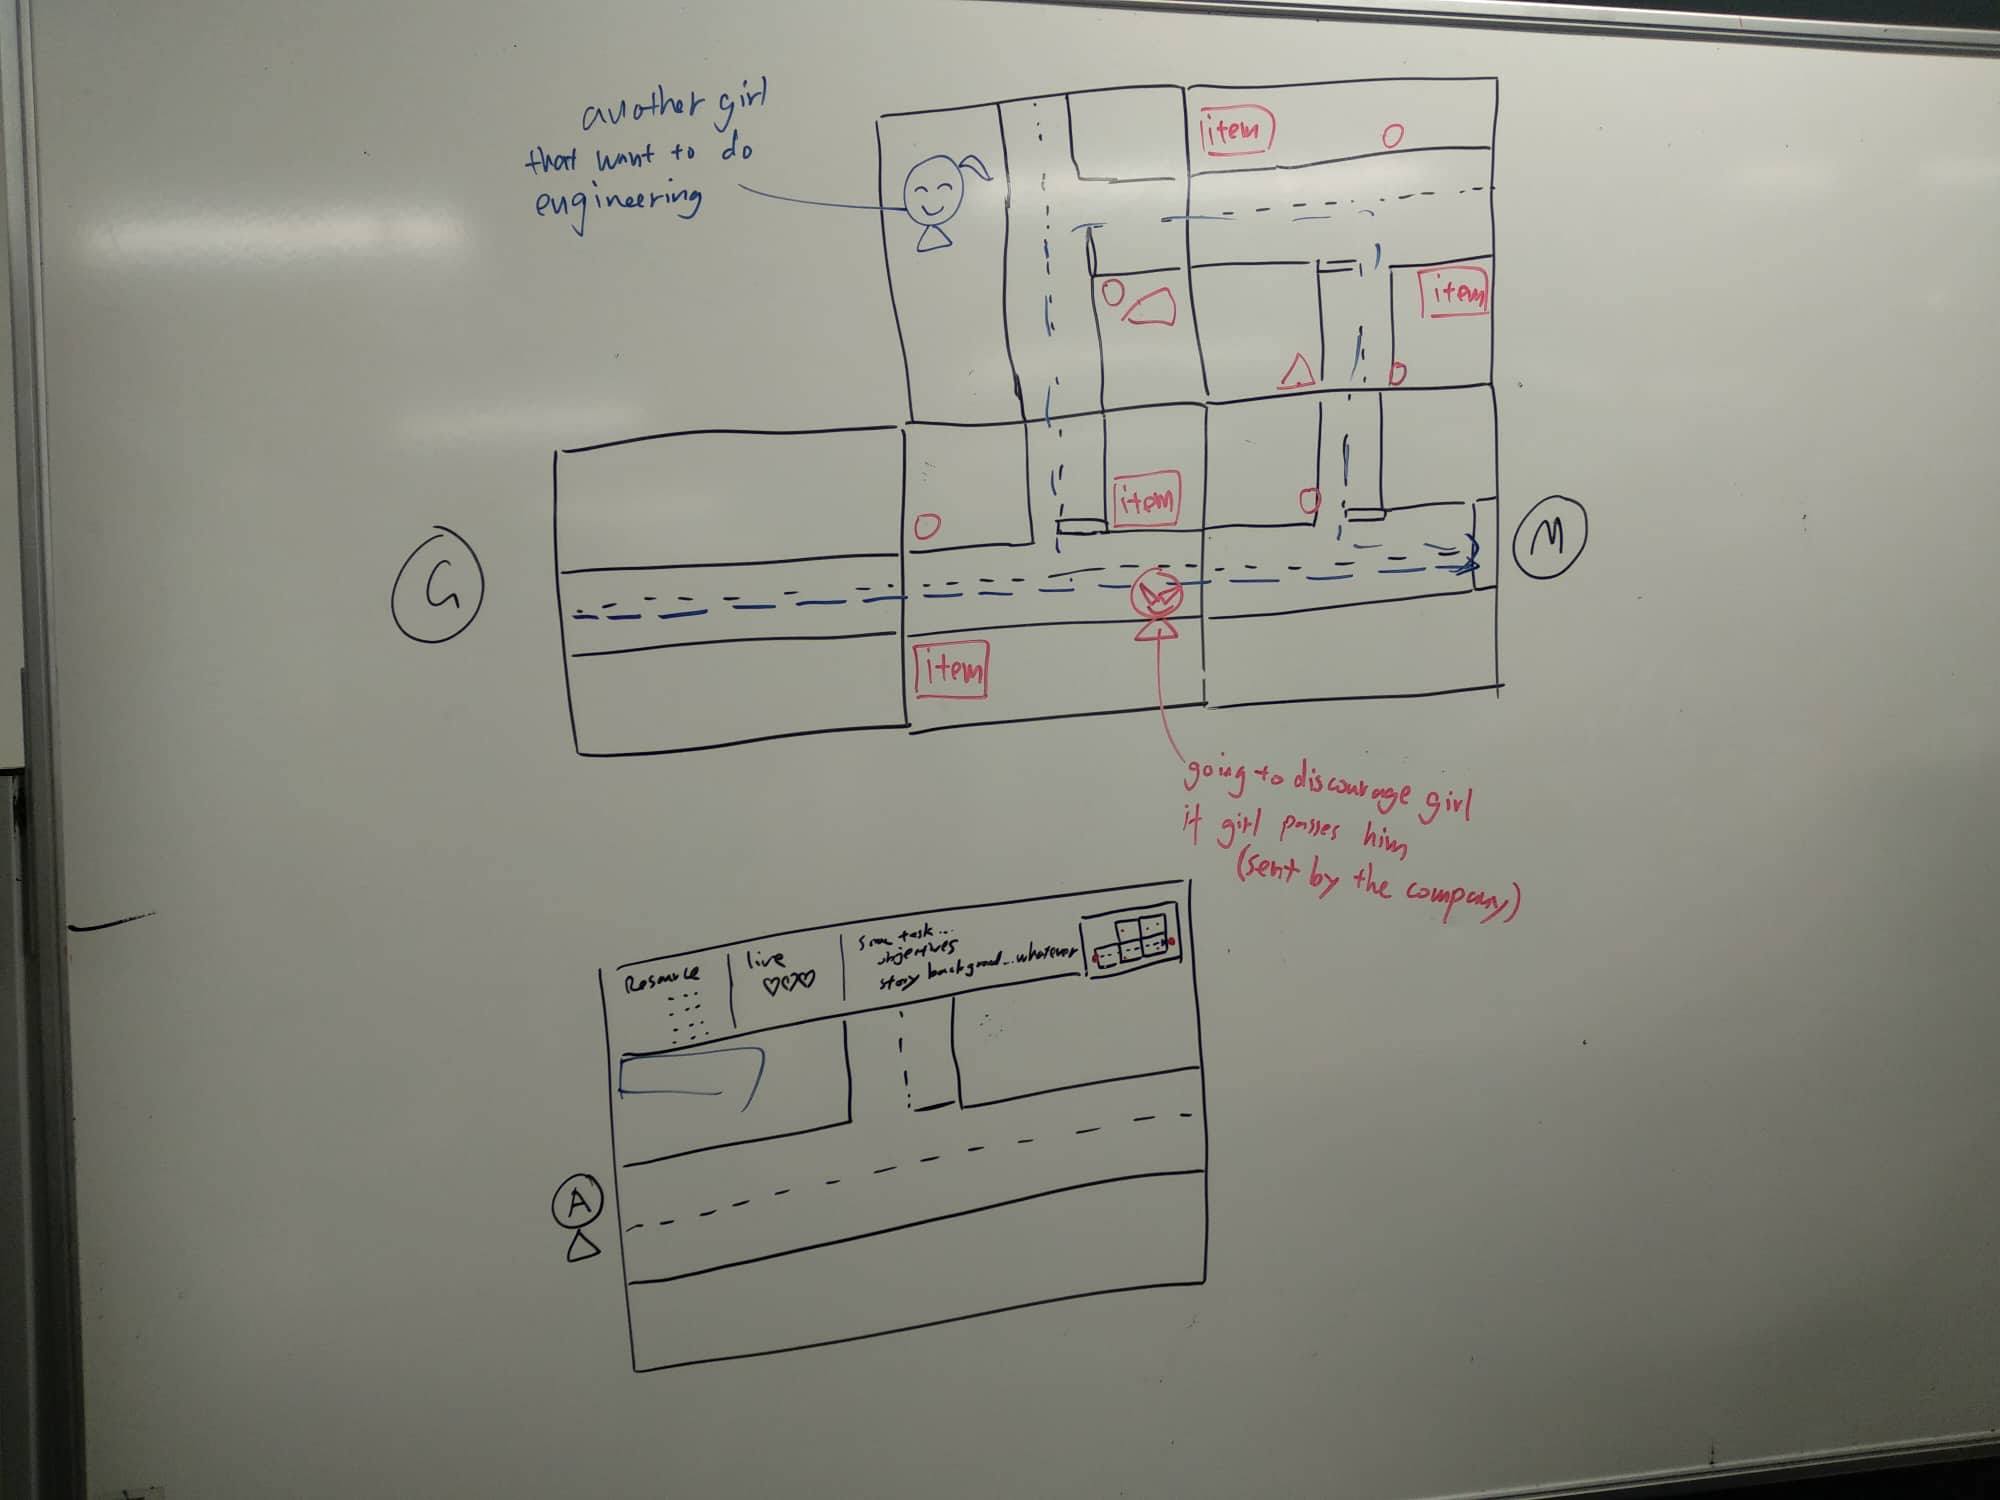 another girl
that want to do
engineering
item
item
item
item
G
M
going to discourage girl
if girl passes him
(sent by the company)
Resource
live
Some task...
objectives
story background...whatever
A